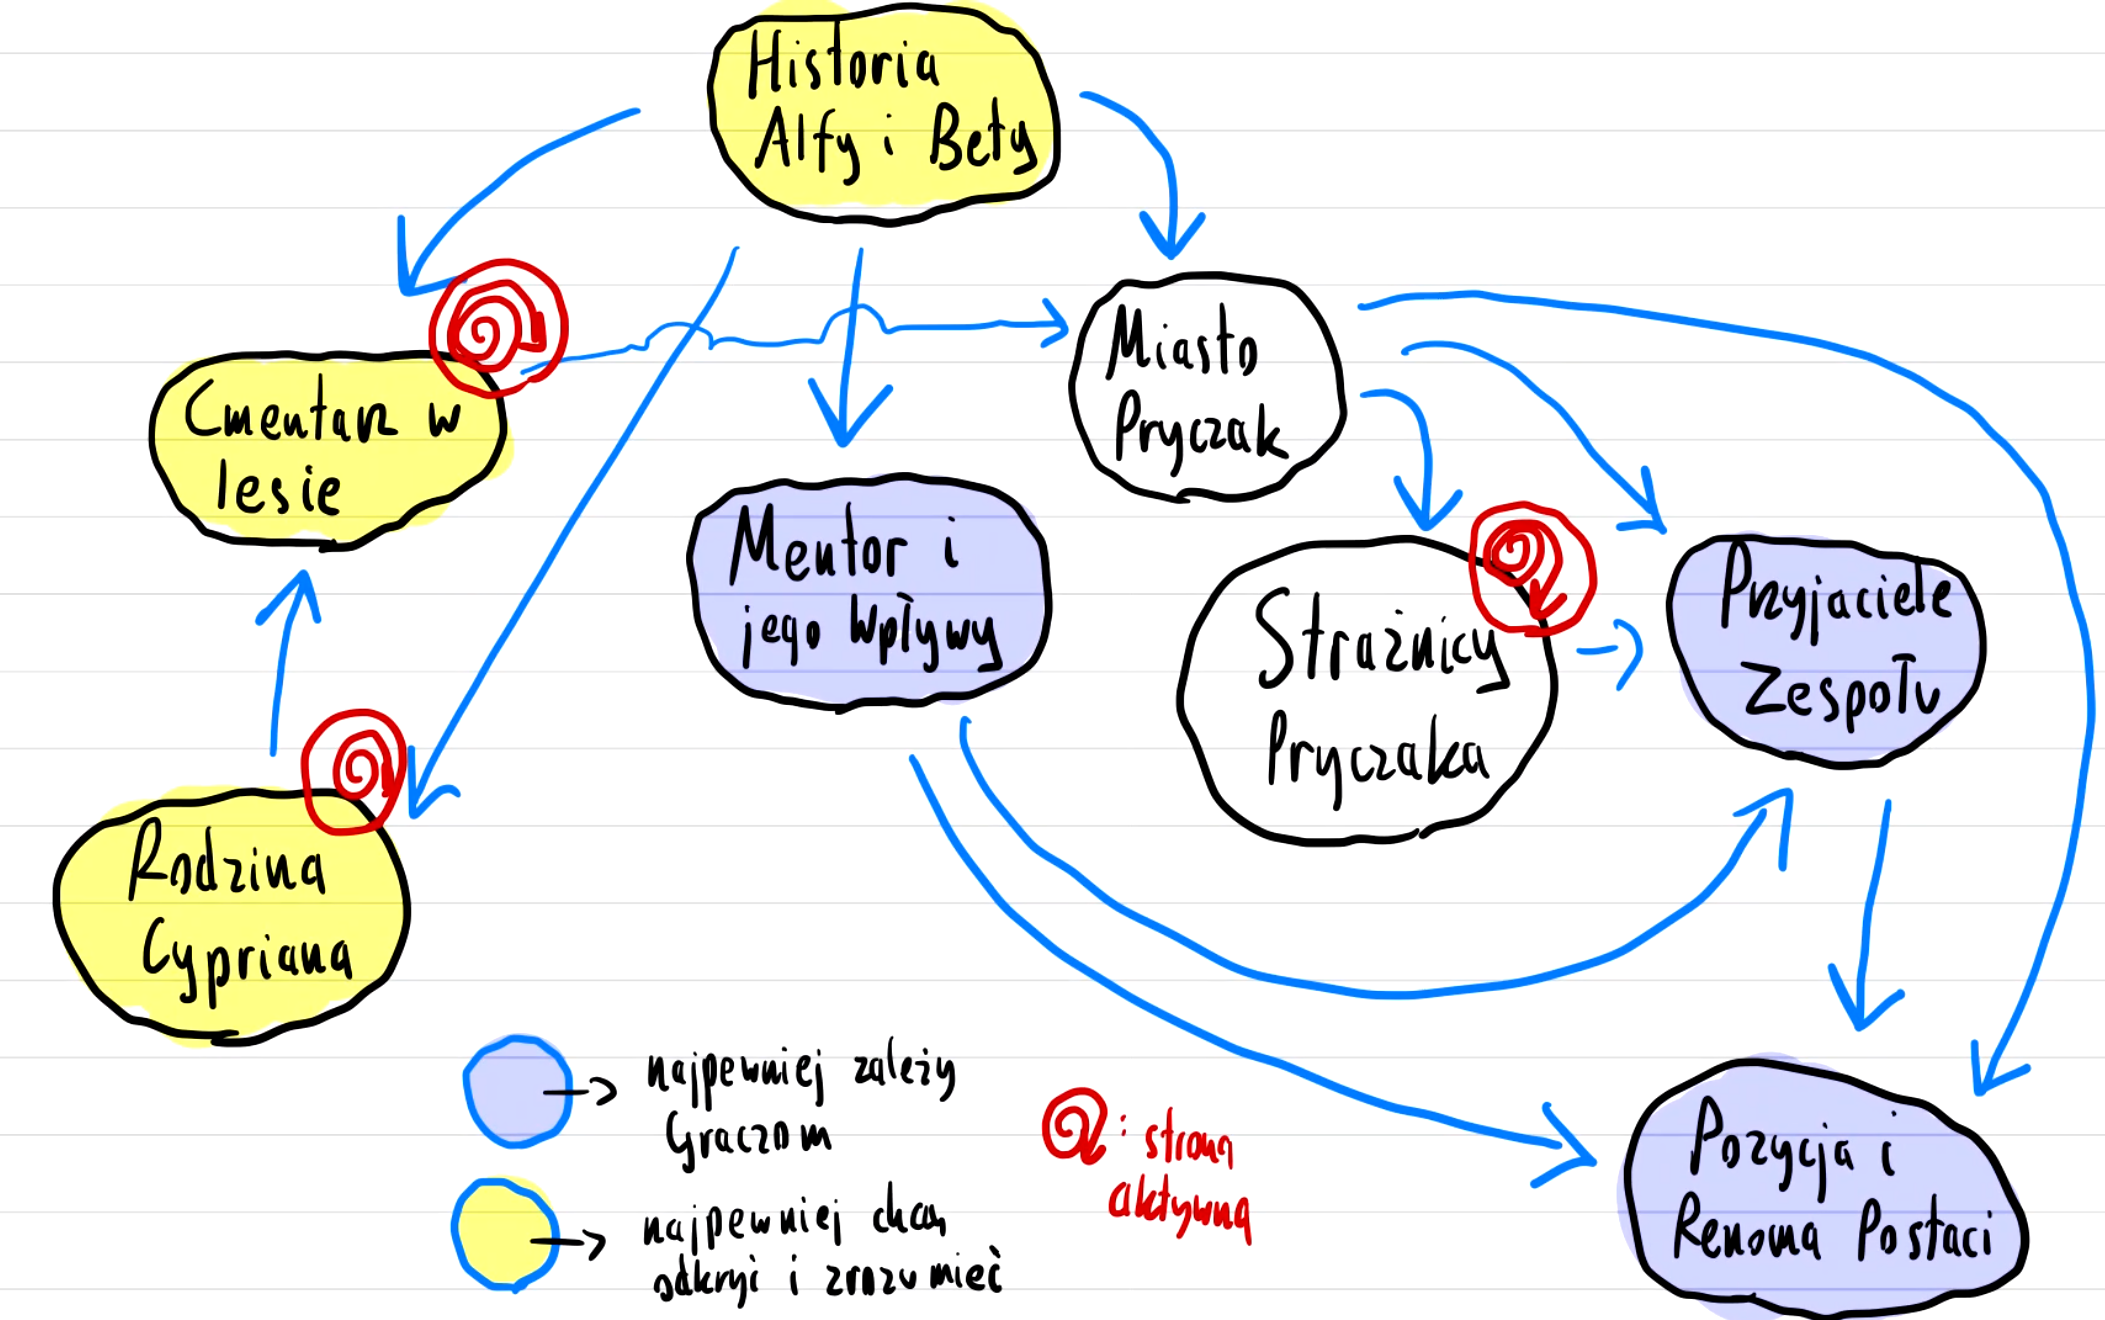 Historia
Alfy i Bety
Miasto
Pryczak
Cmentarz w
lesie
Mentor i
jego Wpływy
Strażnicy
Pryczaka
Przyjaciele
Zespołu
Rodzina
Cypriana
Pozycja i
Renoma Postaci
najpewniej zależy
Graczom
najpewniej chcą
odkryć i zrozumieć
: strona
aktywna